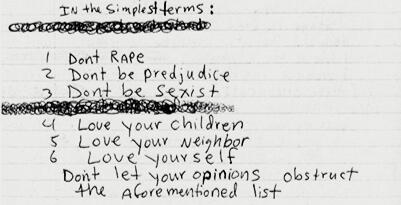 IN the simplest terms:
1 Dont RAPE
2 Dont be predjudice
3 Dont be sexist
4 Love your children
5 Love your Neighbor
6 Love yourself
Don't let your opinions obstruct
the aforementioned list